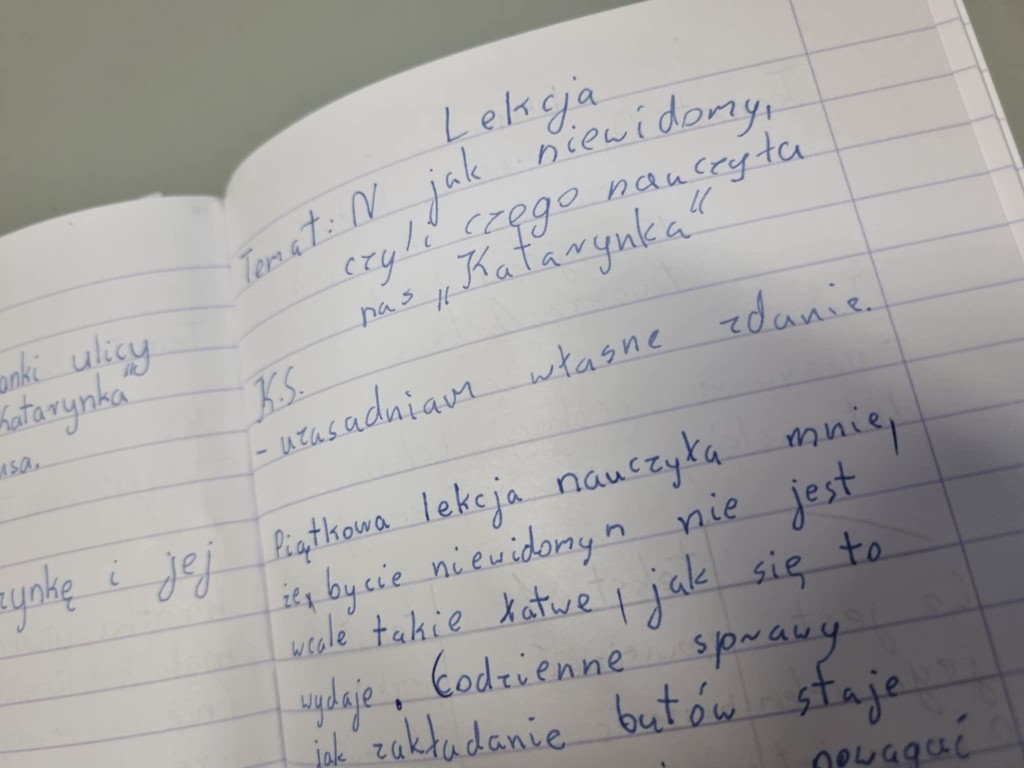 anki ulicy
Katarynka"
usa.
rynkę i jej
Lekcja
Temat: N jak niewidomy,
czyli czego nauczyła
nas „Katarynka"
K.S.
- uzasadniam własne zdanie.
Piątkowa lekcja nauczyła mnie,
że, bycie niewidomym nie jest
wcale takie łatwe, jak się to
wydaje. Codzienne sprawy
jak zakładanie butów staje